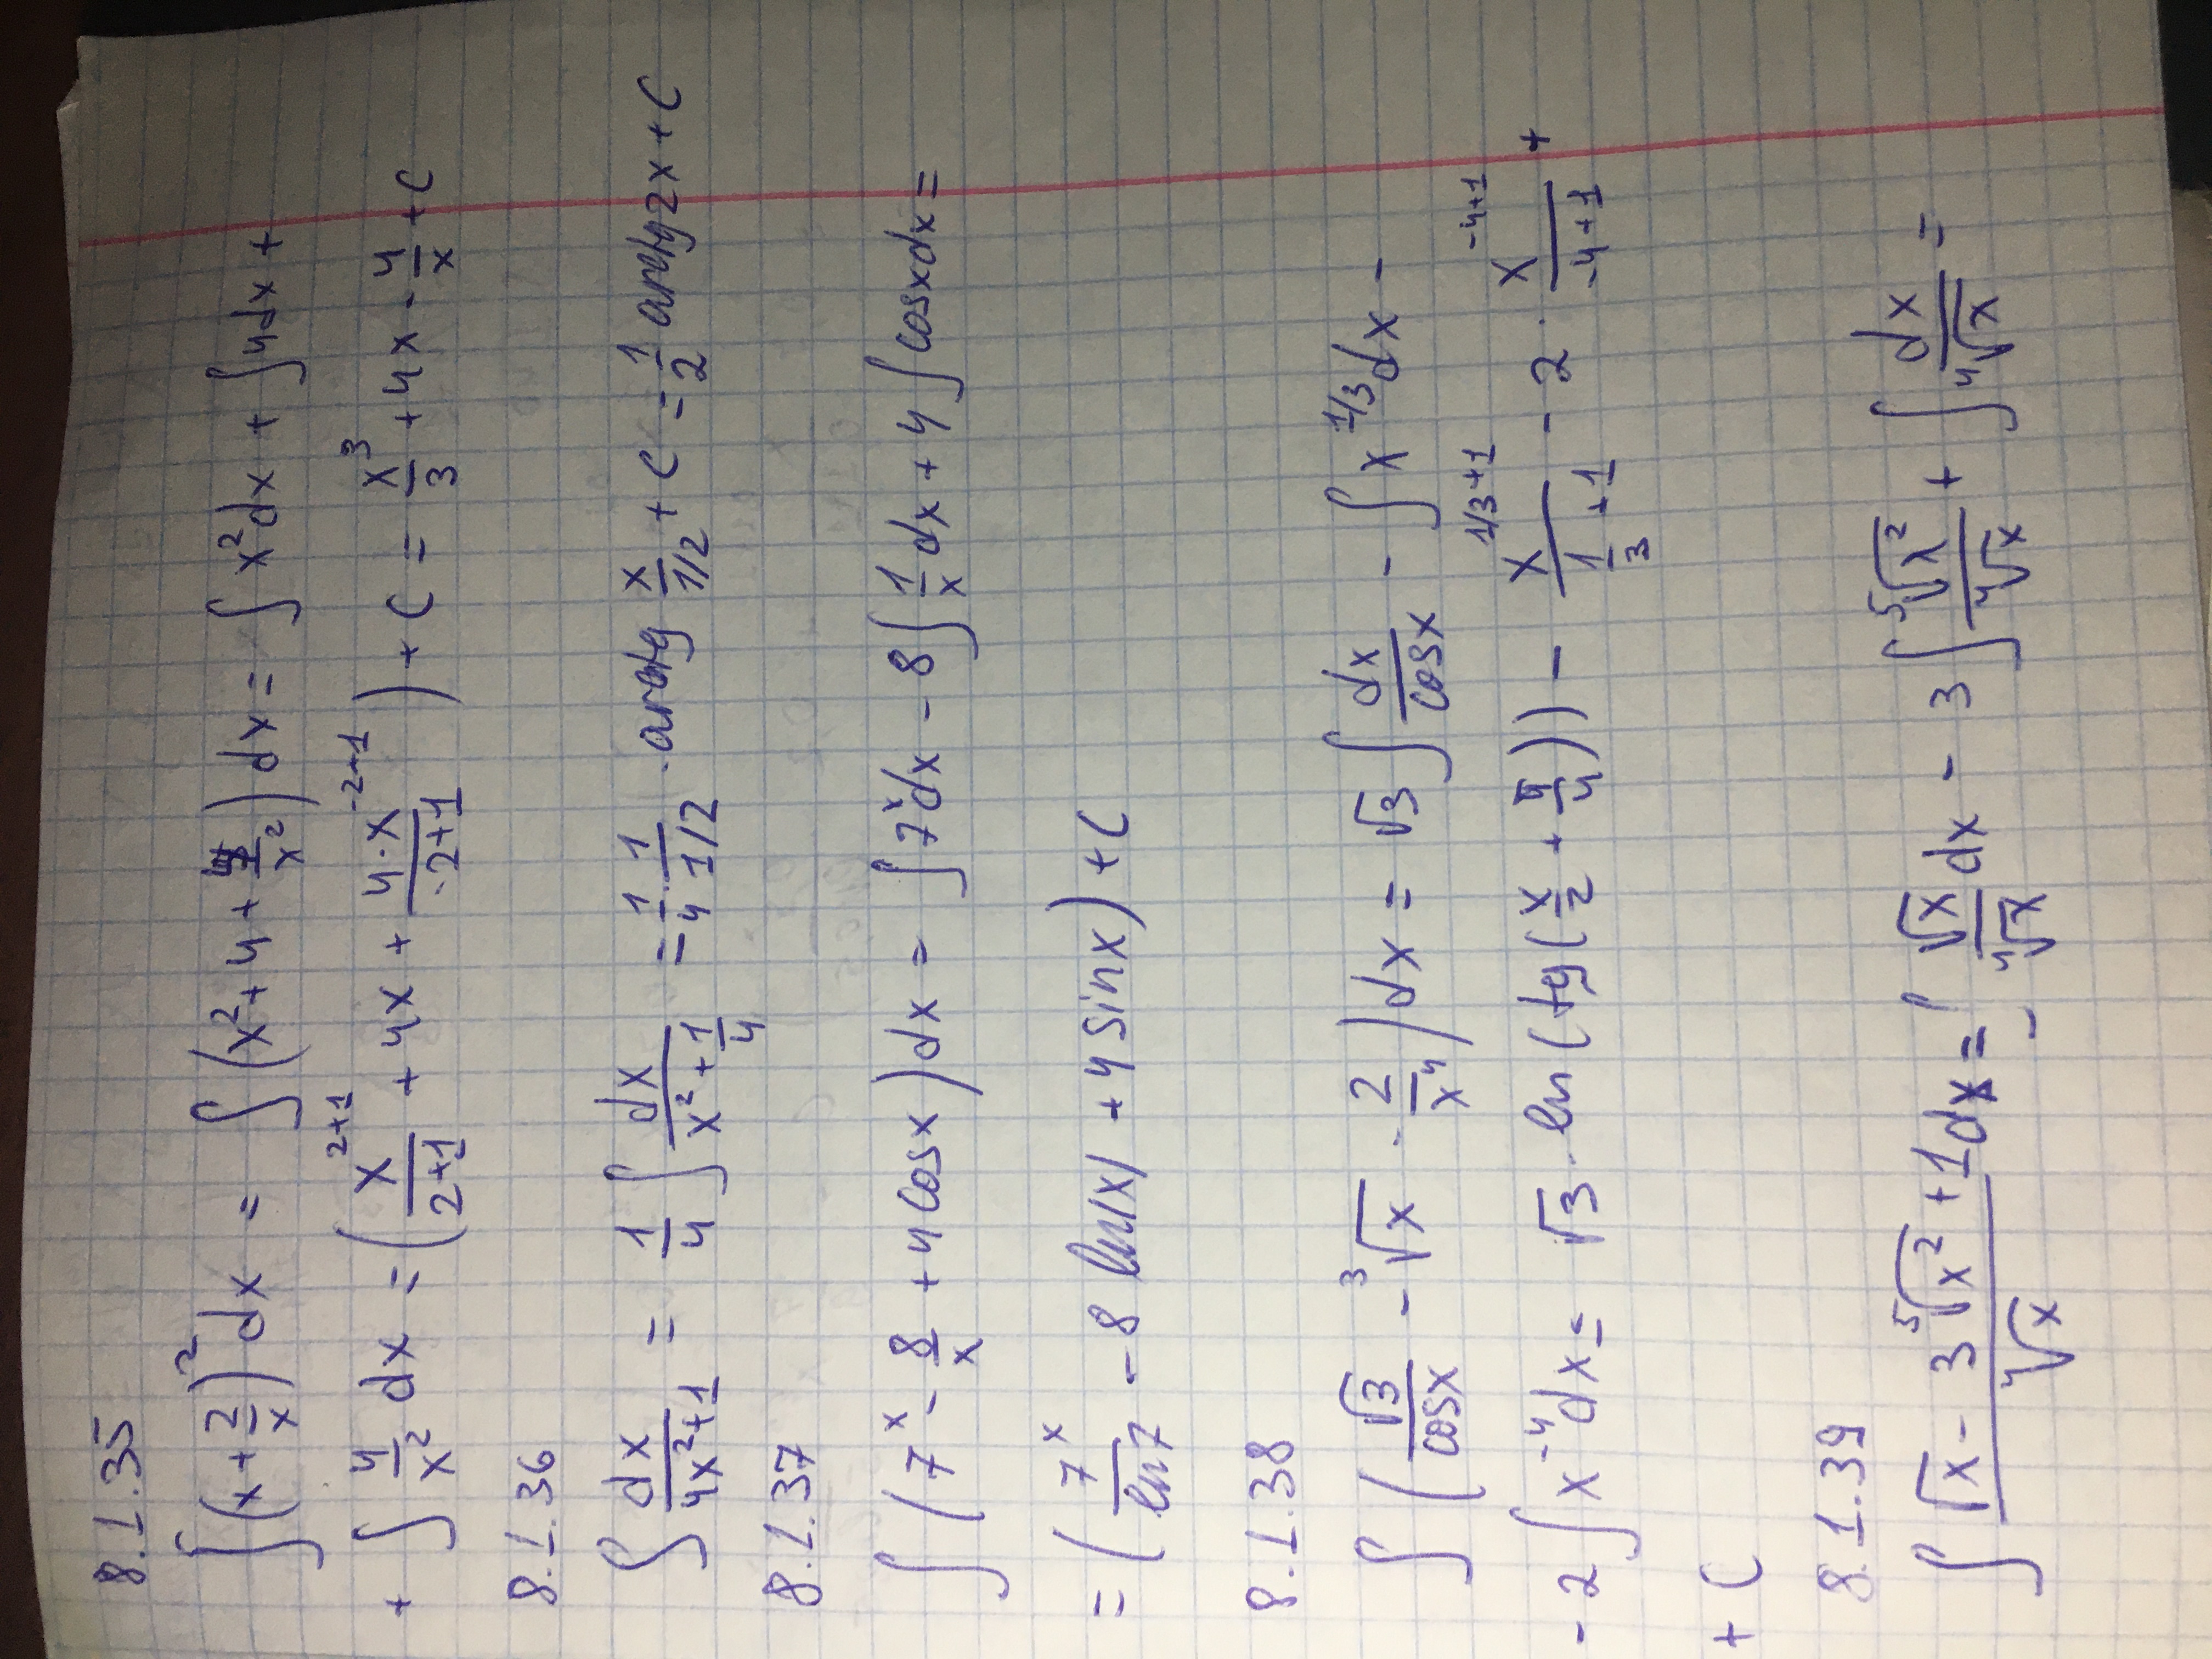 8.1.35
∫(x + 2/x)² dx = ∫(x² + 4 + 4/x²) dx = ∫ x² dx + ∫4dx +
+ ∫ 4/x² dx = (x^(2+1)/(2+1) + 4x + 4·x^(-2+1)/(-2+1)) + C = x³/3 + 4x - 4/x + C
8.1.36
∫ dx/(4x²+1) = 1/4 ∫ dx/(x² + 1/4) = 1/4 · 1/(1/2) · arctg x/(1/2) + C = 1/2 arctg 2x + C
8.1.37
∫ (7^x - 8/x + 4cosx) dx = ∫7^x dx - 8∫ 1/x dx + 4 ∫cosxdx =
= (7^x/ln7 - 8 ln|x| + 4 sinx) + C
8.1.38
∫ (√3/cosx - ³√x - 2/x⁴) dx = √3 ∫ dx/cosx - ∫ x^(1/3) dx -
- 2∫x^(-4) dx = √3 · ln(tg(x/2 + π/4)) - x^(1/3+1)/(1/3+1) - 2 · x^(-4+1)/(-4+1) +
+ C
8.1.39
∫ (√x - 3 ⁵√x² + 1)/⁴√x dx = ∫ √x/⁴√x dx - 3 ∫ ⁵√x²/⁴√x + ∫ dx/⁴√x =